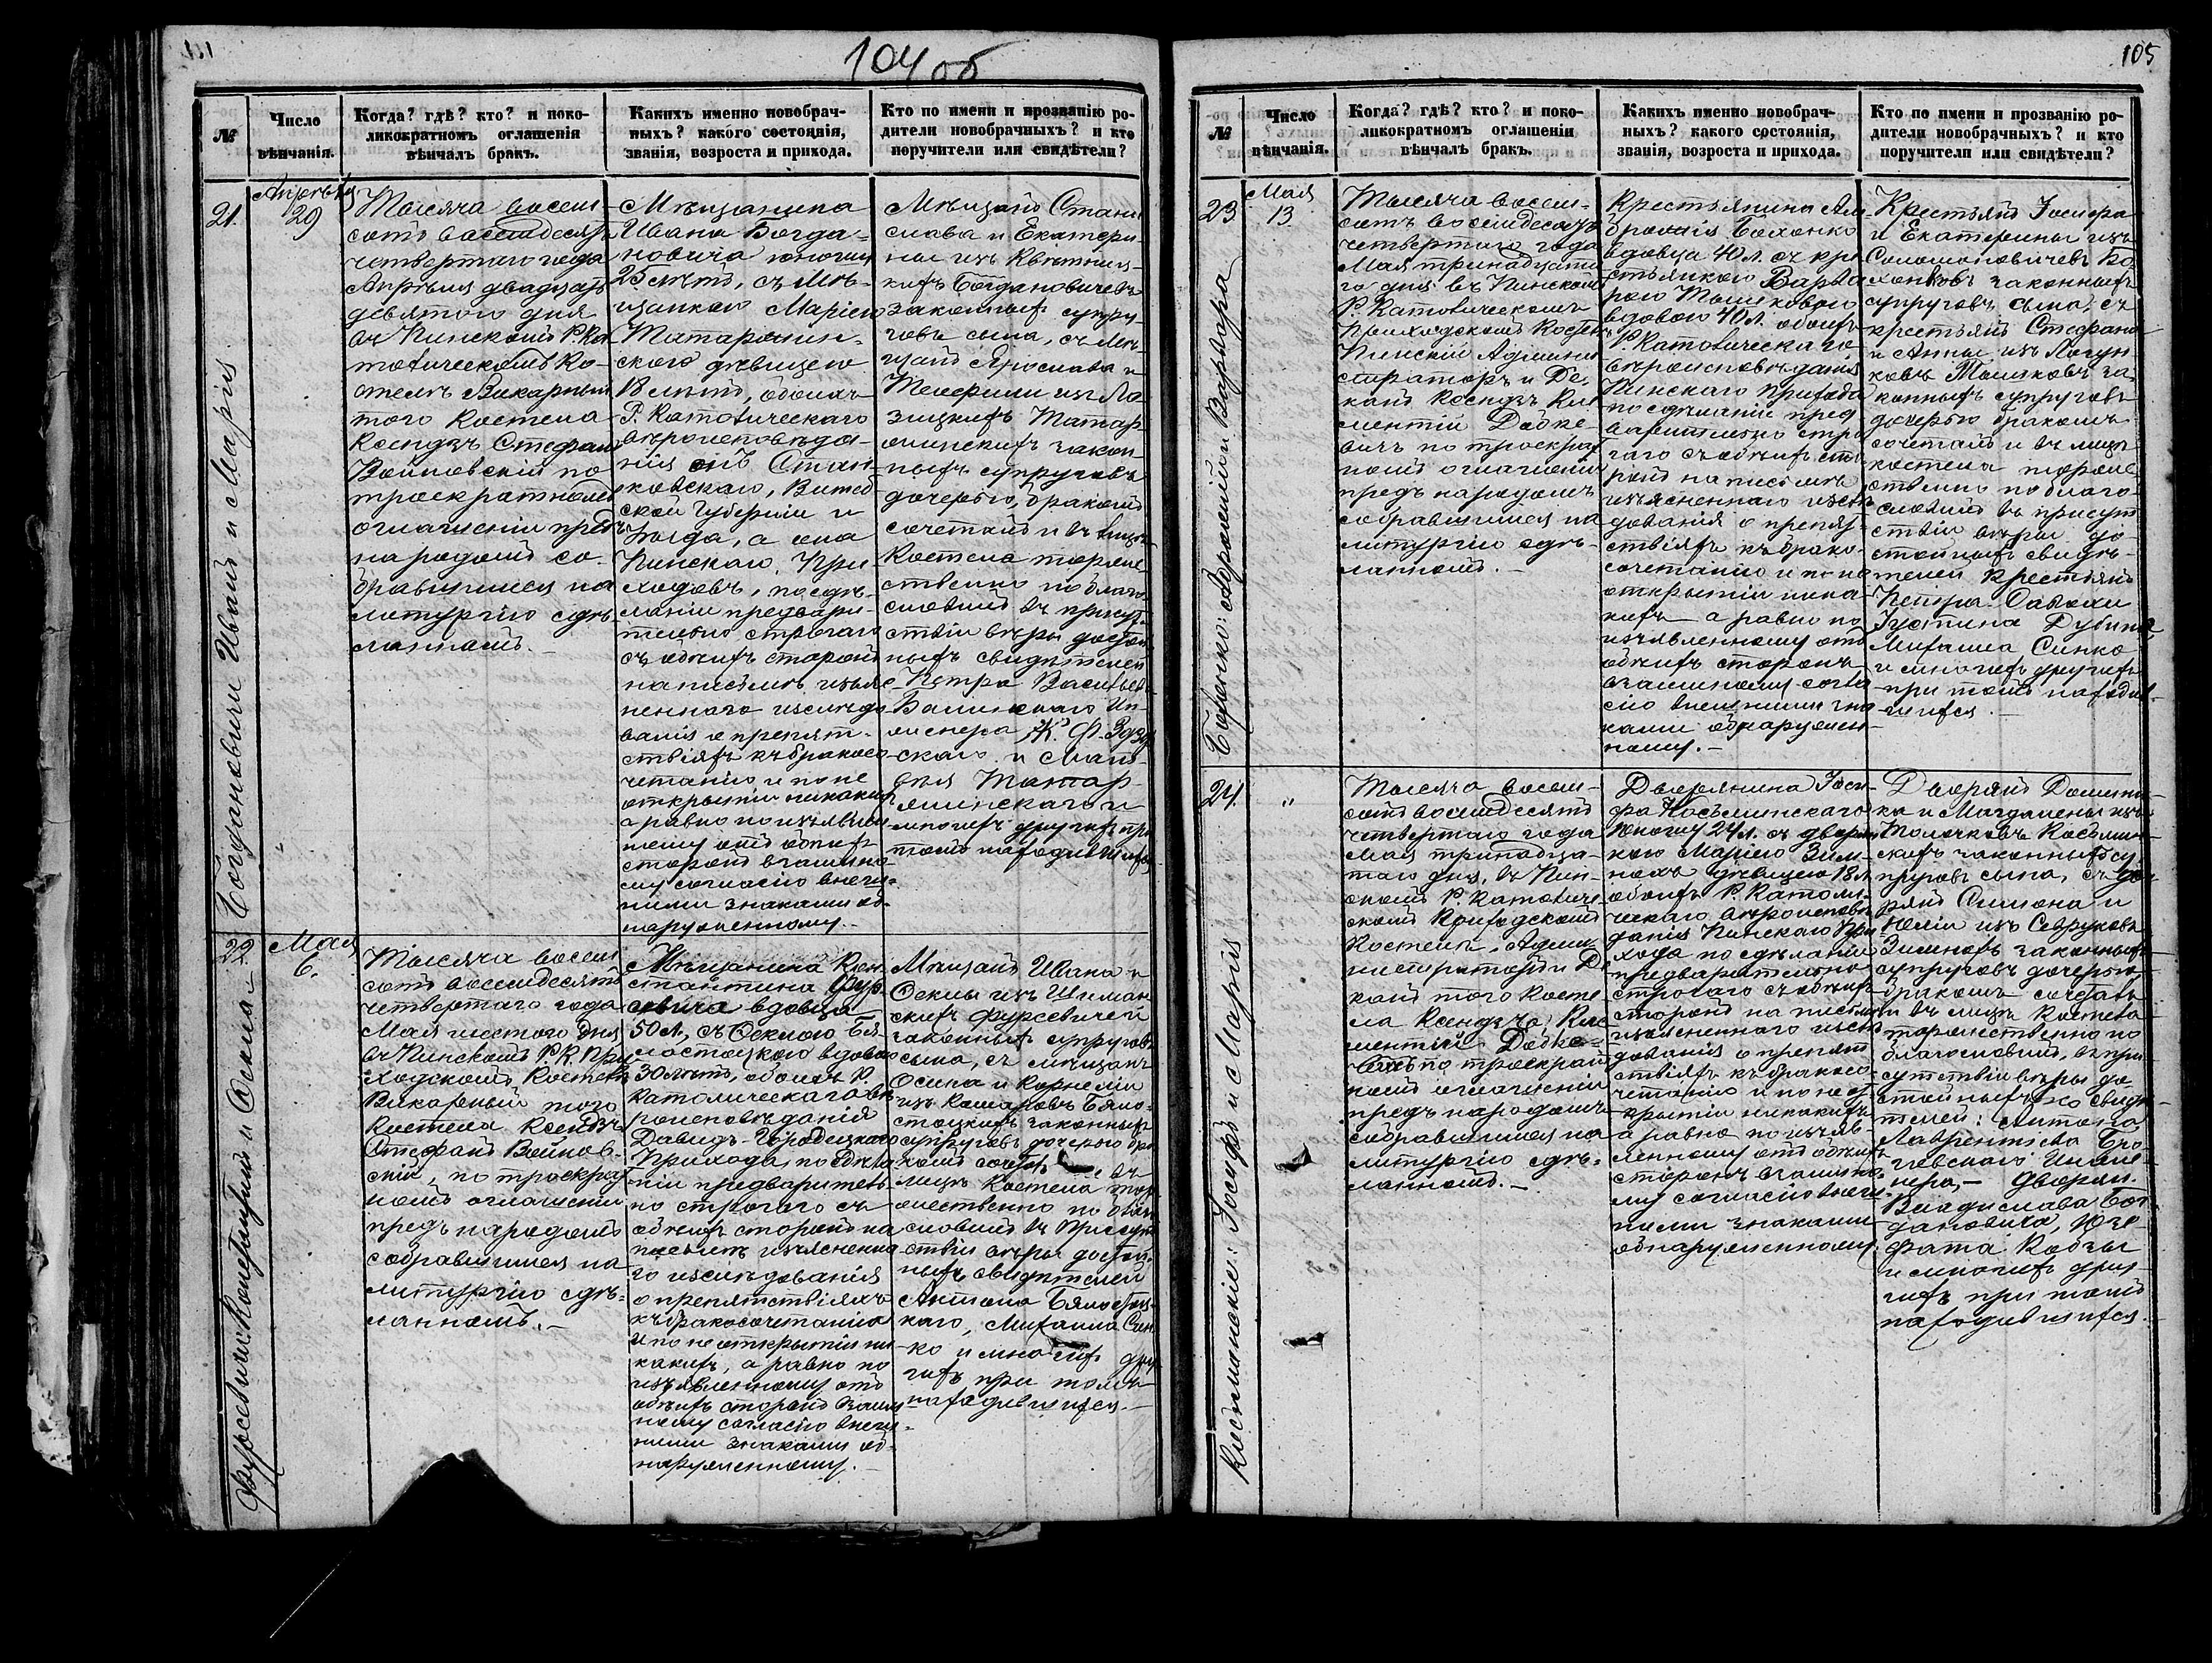 104 об
105
№
Число
вѣнчанія.
Когда? гдѣ? кто? и поко-
ликократномъ оглашеніи
вѣнчалъ бракъ.
Какихъ именно новобрач-
ныхъ? какого состоянія,
званія, возроста и прихода.
Кто по имени и прозванію ро-
дители новобрачныхъ? и кто
поручители или свидѣтели?
21.
Богдановичи Иванъ и Марія
Апрѣля
29
Тысяча восем-
сотъ восемдесятъ
четвертаго года
Апрѣля двадцать
девятого дня
въ Пинскомъ Р. Ка
толическомъ Ко-
стелѣ Викарный
того Костела
Ксендзъ Стефанъ
Войновскій по
троекратномъ
оглашеніи предъ
народомъ со-
бравшимся на
литургію сдѣ-
ланномъ.
Мѣщанина
Ивана Богда-
новича юношу
25 лѣтъ, съ Мѣ-
щанкою Маріею
Татарчин-
скою дѣвицею
18 лѣтъ, обоихъ
Р. Католическаго
вѣроисповѣда-
нія онъ Стан-
ковскаго, Витеб
ской Губерніи и
Уезда, а она
Пинскаго При
ходовъ, по сдѣ-
ланіи предвари-
тельно строгаго
съ обѣихъ сторонъ
на письмѣ изъяс
ненного изслѣдо
ванія о препят-
ствіяхъ къ бракосо
четанію и по не
открытіи никакихъ
а равно по изъявлен
ному отъ обѣихъ
сторонъ взаимно
му согласію внеш-
ними знаками об-
наруженному.
Мѣщанъ Стани
слава и Екатери-
ны изъ Квятков-
кихъ Богдановичевъ
законныхъ супру-
говъ сына, съ Мѣ-
щанъ Ярослава и
изъ Ла
зицкихъ Татар-
чинскихъ закон
ныхъ супруговъ
дочерью, бракомъ
сочеталъ и въ лицѣ
Костела торже
ственно по благо
словилъ въ присут-
ствіи вѣры достой
ныхъ свидѣтелей
Петра Васильев
Ин-
женера
скаго и Матв-
вѣя Татар-
чинскаго и
многихъ другихъ при
томъ находившихся
22
Фурсевичи Константинъ и Оскна
Мая
6.
Тысяча восем
сотъ восемдесятъ
четвертаго года
Мая шестого дня
въ Пинскомъ Р. К. При
ходскомъ Костелѣ
Викарный того
Костела Ксендзъ
Стефанъ Войнов-
скій, по троекрат
номъ оглашеніи
предъ народомъ
собравшимся на
литургію сдѣ-
ланномъ.
Мѣщанина Кон-
стантина Фур-
севича вдовца
50 л., съ Оскною Бя
лостоцкою вдовою
30 лѣтъ, обоихъ Р.
Католическаго вѣ
роисповѣданія
Давидъ-Городецкаго
Прихода, по сдѣла
ніи предваритель
но строгаго съ
обѣихъ сторонъ на
письмѣ изъясненна
го изслѣдованія
о препятствіяхъ
къ бракосочетанію
и по не открытіи ни
какихъ, а равно по
изъявленному отъ
обѣихъ сторонъ взаим
ному согласію внеш-
ними знаками об-
наруженному.
Мѣщанъ Ивана и
Оскны изъ Шиман
скихъ Фурсевичей
законныхъ супруговъ
сына, съ мѣщанъ
Осипа и Корнеліи
изъ Комаровъ Бяло-
стоцкихъ законныхъ
супруговъ дочерью бра
комъ сочеталъ и въ
лицѣ Костела тор-
жественно по благо
словилъ въ присут
ствіи вѣры достой-
ныхъ свидѣтелей
Антона Бялостоц-
каго, Михаила Син
ко и многихъ дру
гихъ при томъ
находившихся.
№
Число
вѣнчанія.
Когда? гдѣ? кто? и поко-
ликократномъ оглашеніи
вѣнчалъ бракъ.
Какихъ именно новобрач-
ныхъ? какого состоянія,
званія, возроста и прихода.
Кто по имени и прозванію ро-
дители новобрачныхъ? и кто
поручители или свидѣтели?
23
Бохонко: Амброжій и Варвара
Мая
13
Тысяча восем-
сотъ восемдесятъ
четвертаго года
Мая тринадцата
го дня въ Пинскомъ
Р. Католическомъ
Приходскомъ Костелѣ
Пинскій Админи
страторъ и Де-
канъ Ксендзъ Кли
ментій Добке-
вичъ по троекрат
номъ оглашеніи
предъ народомъ
собравшимся на
литургію сдѣ-
ланномъ.
Крестьянина Ам
брожія Бохонко
вдовца 40 л. съ кре
стьянкою Варва
рою Тышковою
вдовою 40 л. обоихъ
Р. Католическаго
вѣроисповѣданія
Пинскаго Прихода
по сдѣланіи пред
варительно стро
гаго съ обѣихъ сто
ронъ на письмѣ
изъясненнаго изслѣ
дованія о препят-
ствіяхъ къ брако-
сочетанію и по не
открытіи ника-
кихъ а равно по
изъявленному отъ
обѣихъ сторонъ
взаимному согла
сію внешними зна
ками обнаружен-
ному.
Крестьянъ Іосифа
и Екатерины изъ
Соломоновичевъ Бо
хонковъ законныхъ
супруговъ сына, съ
крестьянъ Стефана
и Анны изъ Логун-
ковъ Тышковъ за
конныхъ супруговъ
дочерью бракомъ
сочеталъ и въ лицѣ
костела торже
ственно по благо
словилъ въ присут
ствіи вѣры до-
стойныхъ свидѣ-
телей Крестьянъ
Петра
Іустина Дубина
Михаила Синко
и многихъ другихъ
при томъ находив-
шихся.
24.
Косьминскіе: Іосифъ и Марія
"
Тысяча восем-
сотъ восемдесятъ
четвертаго года
Мая тринадца-
таго дня, въ Пин-
скомъ Р. Католиче-
скомъ Приходскомъ
Костелѣ, Адми-
нистраторъ и Де
канъ того Косте
ла Ксендзъ Кли
ментій Добке-
вичъ по троекрат
номъ оглашеніи
предъ народомъ
собравшимся на
литургію сдѣ-
ланномъ.
Дворянина Іоси-
фа Косьминскаго
юношу 24 л. съ дворян
кою Маріею Зим-
нохъ дѣвицею 18 л.
обоихъ Р. Католи-
ческаго вѣроисповѣ
данія Пинскаго При
хода по сдѣланіи
предварительно
строгаго съ обѣихъ
сторонъ на письмѣ
изъясненного изслѣ
дованія о препят
ствіяхъ къ бракосо
четанію и по не от
крытіи никакихъ
а равно по изъяв-
ленному отъ обѣихъ
сторонъ взаимно-
му согласію внеш-
ними знаками
обнаруженному
Дворянъ Домини-
ка и Магдалены изъ
Толочковъ Косьмин-
скихъ законныхъ су-
пруговъ сына, съ дво
рянъ Симона и
Юліи изъ Севруковъ
Зимнохъ законныхъ
супруговъ дочерью
бракомъ сочеталъ
и въ лицѣ Костела
торжественно по
благословилъ, въ при
сутствіи вѣры до
стойныхъ свидѣ-
телей: Антона
Лаврентіева
Инже-
нера, Дворян.
Владислава Бог
дановича, Юзе-
фата Кобзы
и многихъ дру-
гихъ при томъ
находившихся.